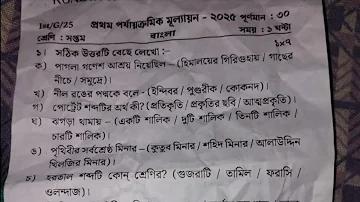 1st/G/25 প্রথম পর্যায়ক্রমিক মূল্যায়ন - ২০২৫ পূর্ণমান : ৩০
শ্রেণি : সপ্তম বাংলা সময় : ১ ঘন্টা
১। সঠিক উত্তরটি বেছে লেখো :- ১x৭
ক) পাগলা গণেশ আশ্রয় নিয়েছিল – (হিমালয়ের গিরিগুহায় / গাছের
নীচে / সমুদ্রে)।
খ) নীল রঙের পদ্মকে বলে - (ইন্দিবর / পুণ্ডরীক / কোকনদ)।
গ) পোর্ট্রেট শব্দটির অর্থ কী? (প্রতিকৃতি / প্রকৃতির ছবি / আত্মপ্রকৃতি)।
ঘ) ঝগড়া থামায় – (একটি শালিক / দুটি শালিক / তিনটি শালিক /
চারটি শালিক)।
ঙ) পৃথিবীর সর্বশ্রেষ্ঠ মিনার – (কুতুব মিনার / শহিদ মিনার / আলাউদ্দিন
খিলজির মিনার)।
চ) হরতাল শব্দটি কোন্ শ্রেণির? (গুজরাটি / তামিল / ফরাসি /
ওলন্দাজ)।